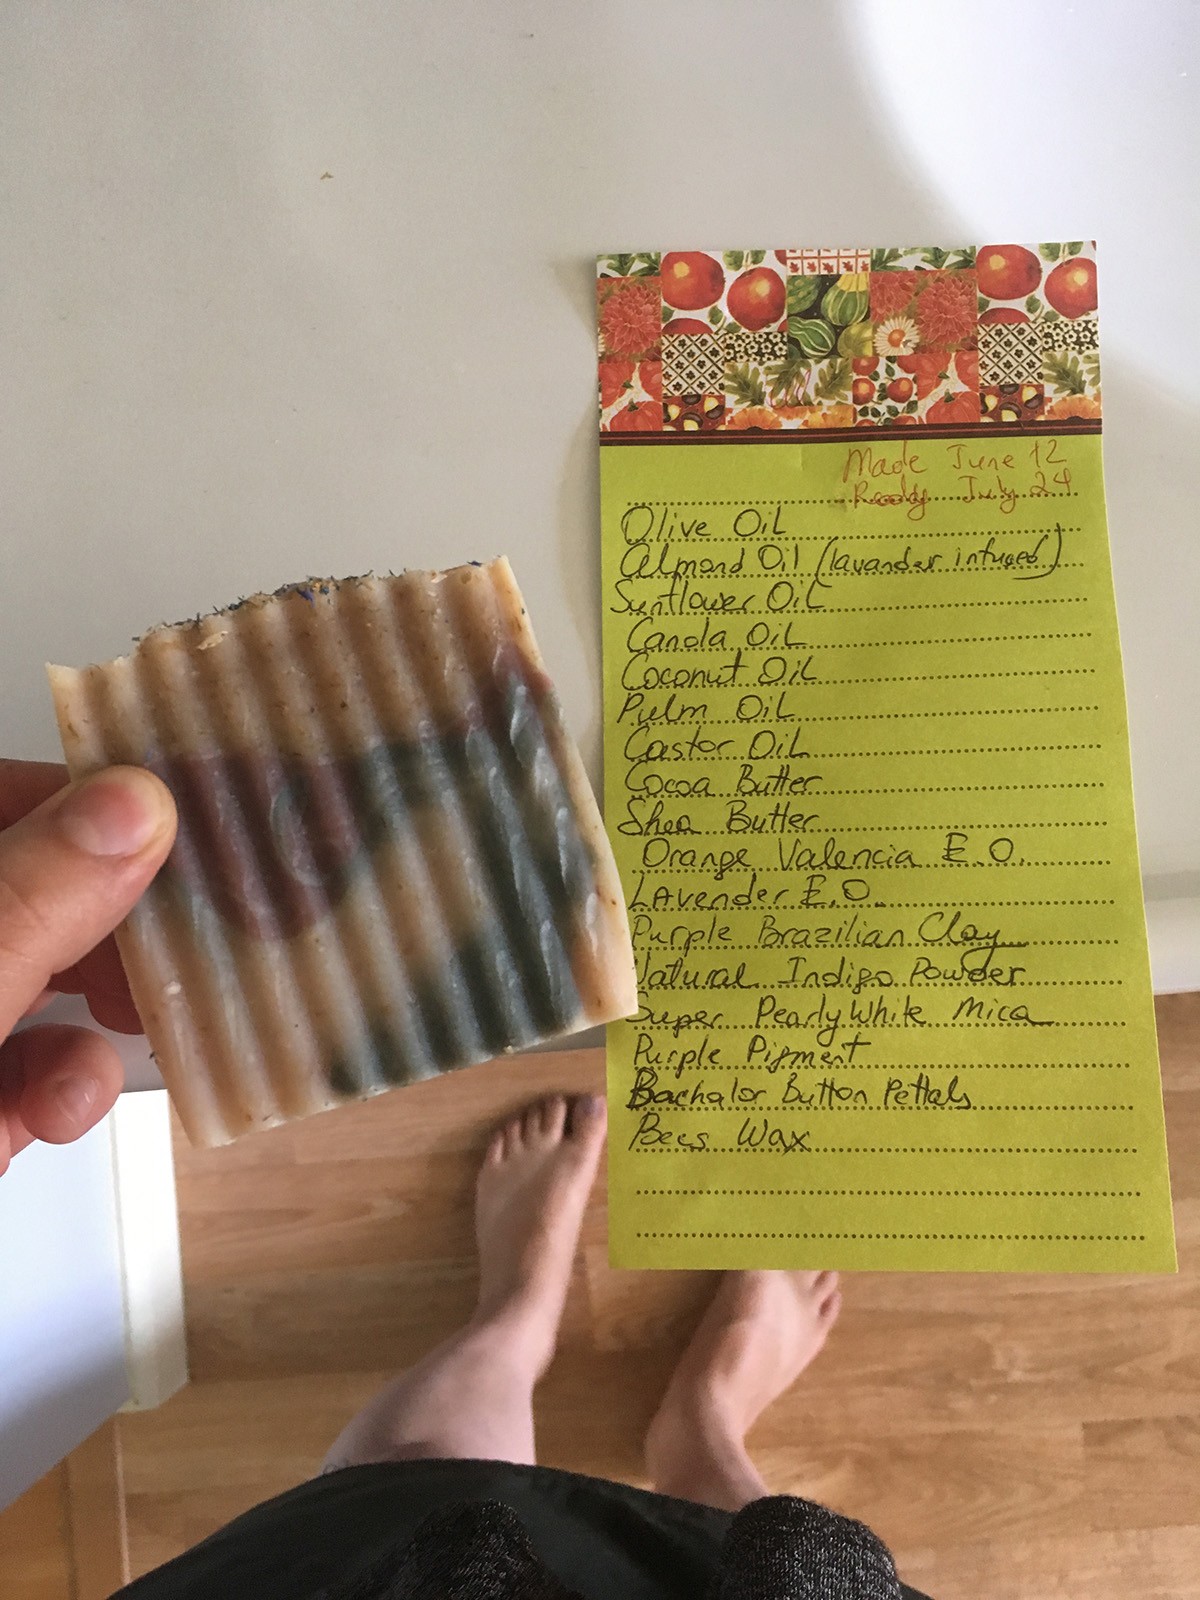 Made June 12
Ready July 24
Olive Oil
Almond Oil (lavander infused)
Sunflower Oil
Canola Oil
Coconut Oil
Pulm Oil
Castor Oil
Cocoa Butter
Shea Butter
Orange Valencia E.O.
LAvender E.O.
Purple Brazilian Clay
Natural Indigo Powder
Super Pearly White Mica
Purple Pigment
Bachalor Button Pettals
Bees Wax